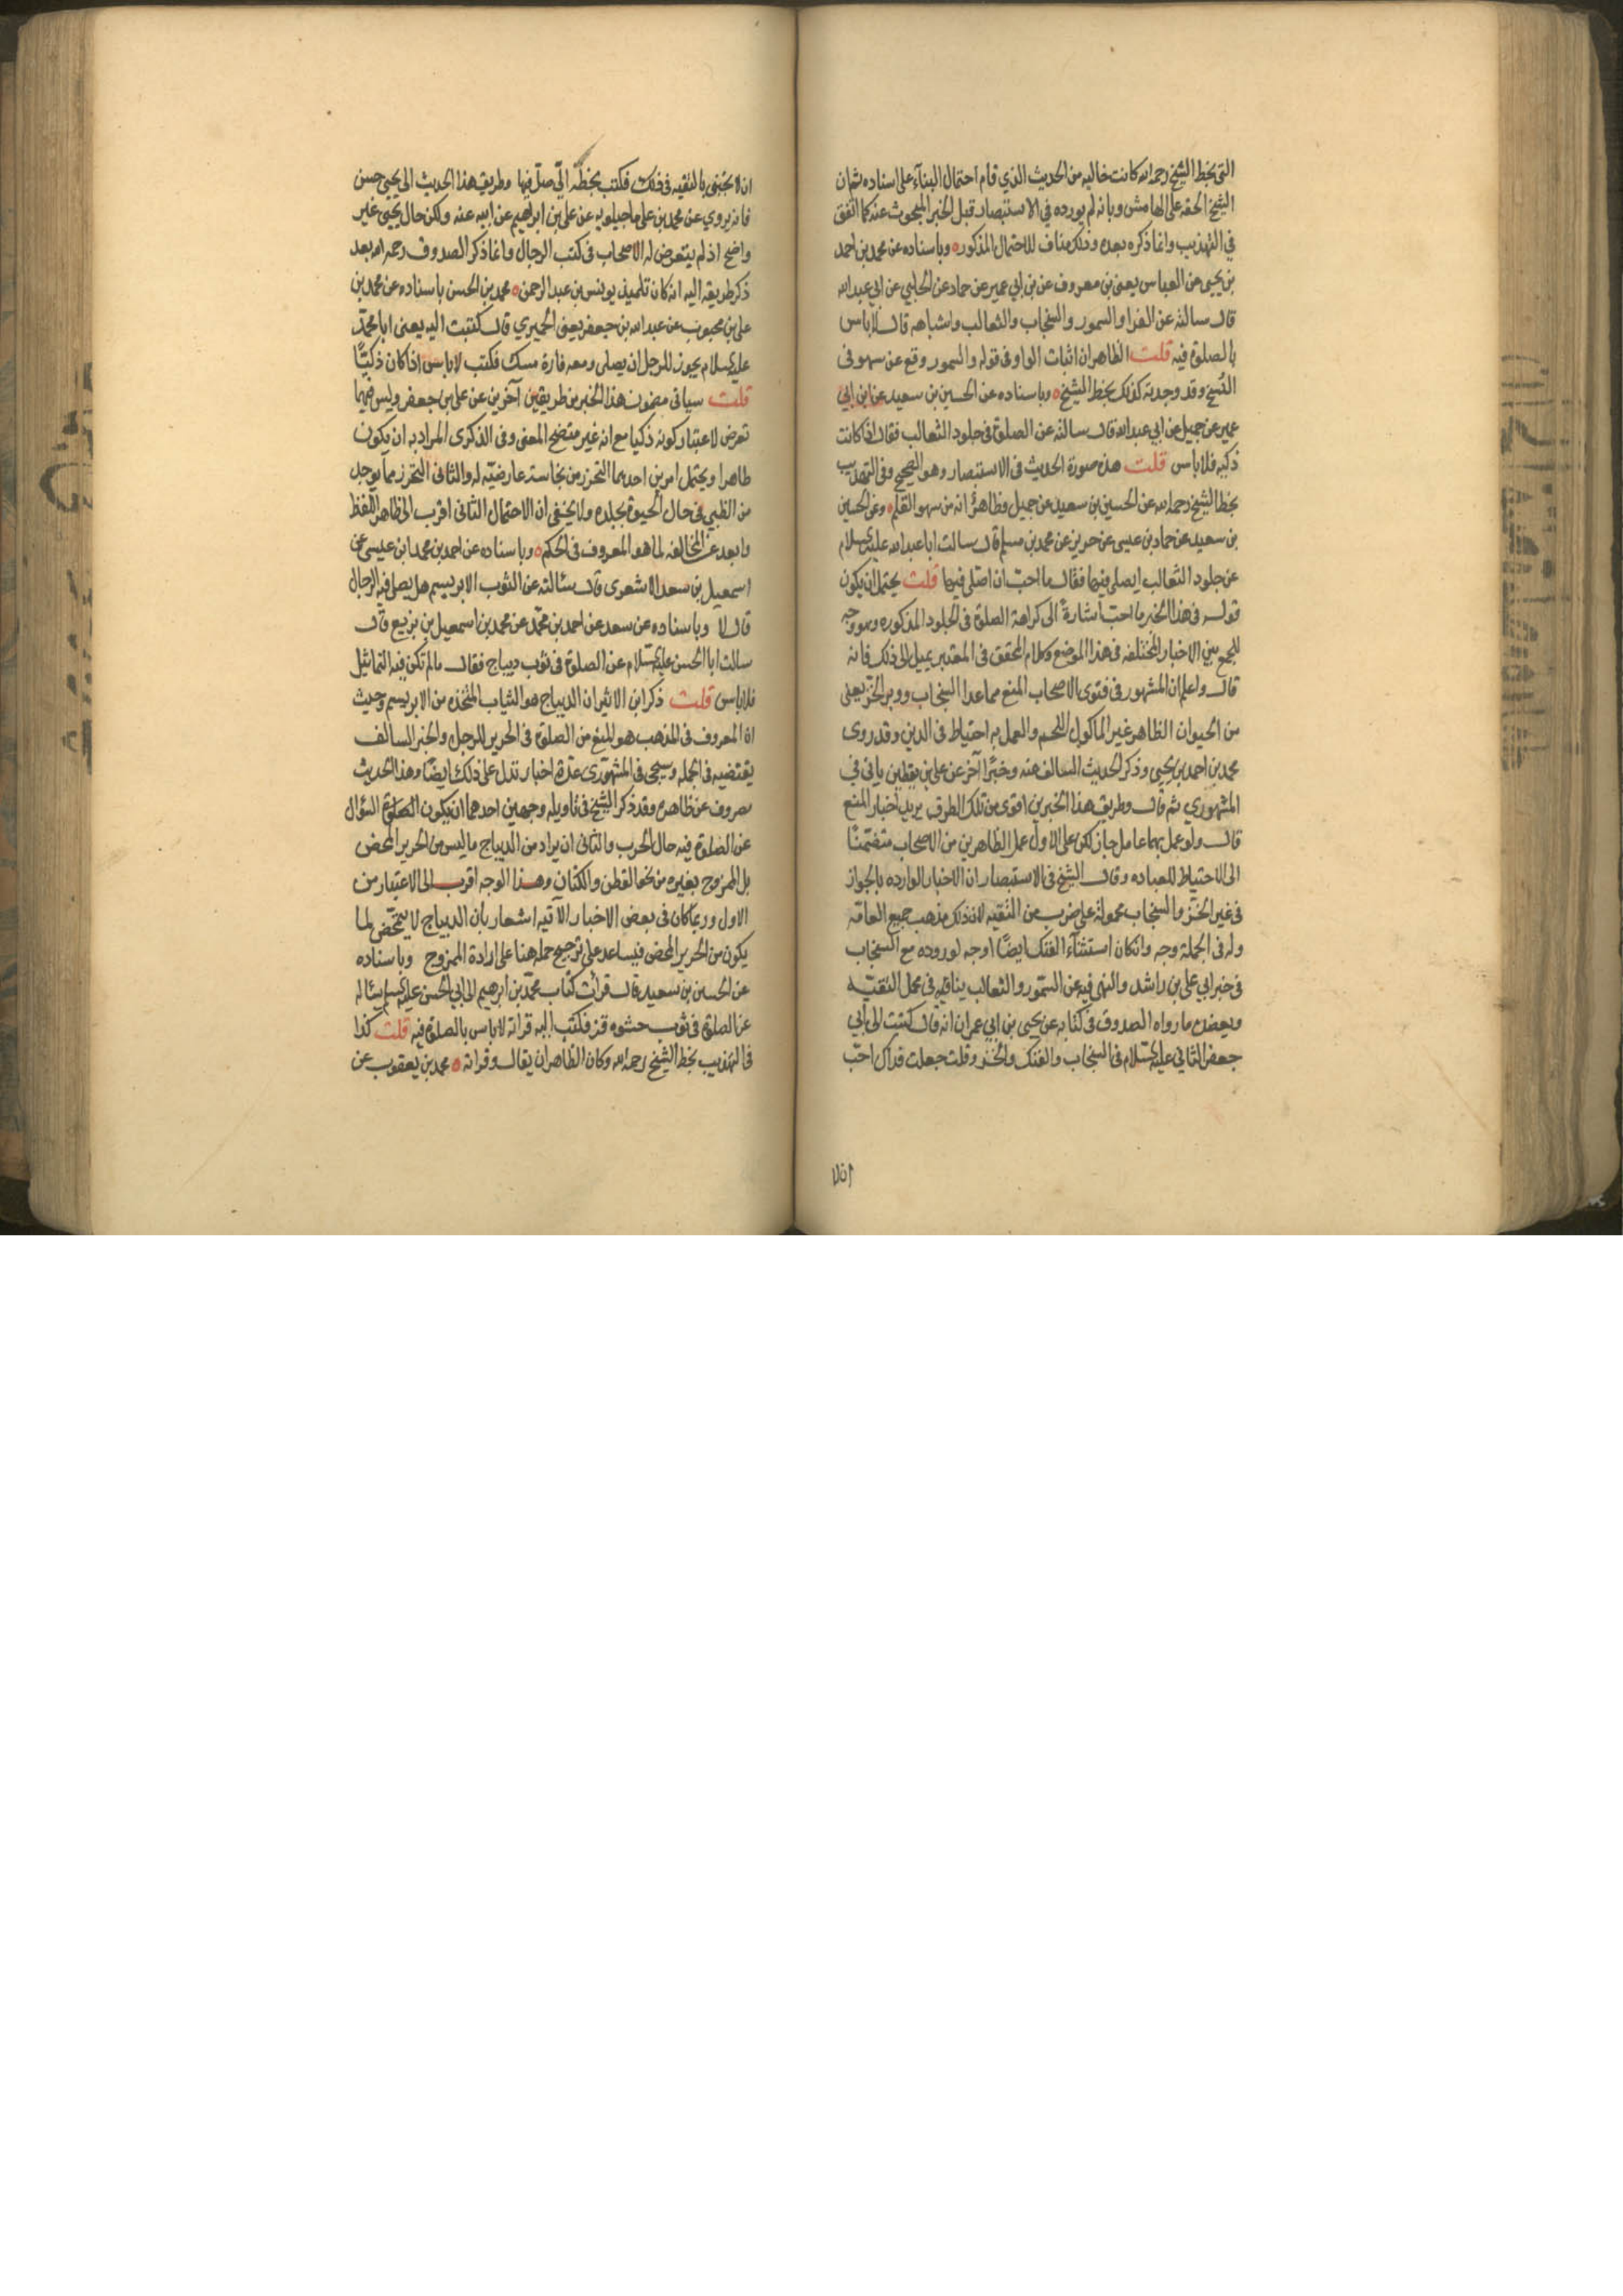 التي بخط الشيخ رحمه الله كانت خاليه من الحديث الذي قام احتمال البناء على اسناده ثم ان
الشيخ الحقه على الهامش وبانه لم يورده في الاستبصار قبل الخبر المبحوث عنه كما اتفق
في التهذيب وانما ذكره بعده وذلك مناف للاحتمال المذكور ه وباسناده عن محمد بن احمد
بن يحيى عن العباس يعني بن معروف عن بن ابي عمير عن حماد عن الحلبي عن ابي عبد الله
قال سالته عن الفرا والسمور والسنجاب والثعالب واشباهه قال لاباس
بالصلوة فيه قلت الظاهر ان اثبات الواو في قوله والسمور وقع عن سهو في
النسخ وقد وجدته كذلك بخط الشيخ ه وباسناده عن الحسين بن سعيد عن ابن ابي
عمير عن جميل عن ابي عبد الله قال سالته عن الصلوة في جلود الثعالب فقال اذا كانت
ذكيه فلاباس قلت هذه صورة الحديث في الاستبصار وهو الصحيح وفي التهذيب
بخط الشيخ رحمه الله عن الحسين بن سعيد عن جميل وظاهر انه من سهو القلم ه وعن الحسين
بن سعيد عن حماد بن عيسى عن حريز عن محمد بن مسلم قال سالت ابا عبد الله عليه السلام
عن جلود الثعالب ايصلى فيها فقال ما احب ان اصلى فيها قلت يحتمل ان يكون
قوله في هذا الخبر ما احب اشارة الى كراهة الصلوة في الجلود المذكوره وهو وجه
للجمع بين الاخبار المختلفه في هذا الموضع وكلام المحقق في المعتبر يميل الى ذلك فانه
قال واعلم ان المشهور في فتوى الاصحاب المنع مما عدا السنجاب ووبر الخز يعني
من الحيوان الظاهر غير الماكول اللحم والعمل به احتياط في الدين وقد روى
محمد بن احمد بن يحيى وذكر الحديث السالف عنه وخبرا آخر عن علي بن يقطين ياتي في
المشهوري ثم قال وطريق هذا الخبرين اقوى من تلك الطرق يريد اخبار المنع
قال ولو عمل بهما عامل جاز لكن على الاول عمل الظاهرين من الاصحاب متضمنا
الى الاحتياط للعباده وقال الشيخ في الاستبصار ان الاخبار الوارده بالجواز
في غير الخز والسنجاب محمولة على ضرب من التقيه لان ذلك مذهب جميع العامه
وله في الجملة وجه وان كان استثناء الفنك ايضا اوجه لوروده مع السنجاب
في خبر ابي علي بن راشد والنهى فيه عن السمور والثعالب ينافيه في محل التقيه
ويعضده ما رواه الصدوق في كتابه عن يحيى بن ابي عمران انه قال كتبت الى ابي
جعفر الثاني عليه السلام في السنجاب والفنك والخز وقلت جعلت فداك احب
ان لا
ان لا تجيبني بالتقيه في ذلك فكتب بخطه الي صل فيها وطريق هذا الحديث الى يحيى حسن
فانه يروي عن محمد بن علي ماجيلويه عن علي بن ابراهيم عن ابيه عنه ولكن حال يحيى غير
واضح اذ لم يتعرض له الاصحاب في كتب الرجال وانما ذكر الصدوق رحمه الله بعد
ذكر طريقه اليه انه كان تلميذ يونس بن عبد الرحمن ه محمد بن الحسن باسناده عن محمد بن
علي بن محبوب عن عبد الله بن جعفر يعني الحميري قال كتبت اليه يعني ابا محمد
عليه السلام يجوز للرجل ان يصلي ومعه فارة مسك فكتب لاباس اذا كان ذكيا
قلت سياتي مضمون هذا الخبر من طريقين آخرين عن علي بن جعفر وليس فيهما
تعرض لاعتبار كونه ذكيا مع انه غير متضح المعنى وفي الذكرى المراد به ان يكون
طاهرا ويحتمل امرين احدهما التحرز من نجاسة عارضيه له والثاني التحرز مما يوجد
من الظبي في حال الحيوة بجلده ولا يخفى ان الاحتمال الثاني اقرب الى ظاهر اللفظ
وابعد عن المخالفه لما هو المعروف في الحكم ه وباسناده عن احمد بن محمد ابن عيسى عن
اسمعيل بن سعد الاشعرى قال سئالته عن الثوب الابريسم هل يصلى فيه الرجال
قال لا وباسناده عن سعد عن احمد بن محمد عن محمد بن اسمعيل بن بزيع قال
سالت ابا الحسن عليه السلام عن الصلوة في ثوب ديباج فقال مالم تكن فيه التماثيل
فلاباس قلت ذكر ابن الاثير ان الديباج هو الثياب المتخذه من الابريسم وحيث
ان المعروف في المذهب هو المنع من الصلوة في الحرير للرجل والخبر السالف
يقتضيه في الجمله وسيجى في المشهورى عدة اخبار تدل على ذلك ايضا وهذا الحديث
مصروف عن ظاهره وقد ذكر الشيخ في تاويله وجهين احدهما ان يكون السؤال
عن الصلوة فيه حال الحرب والثاني ان يراد من الديباج ما ليس من الحرير المحض
بل الممزوج بغيره من نحو القطن والكتان وهذا الوجه اقرب الى الاعتبار من
الاول وربما كان في بعض الاخبار الآتيه اشعار بأن الديباج لا يتمحض لما
يكون من الحرير المحض فيساعد على ترجيح حمله هنا على ارادة الممزوج وباسناده
عن الحسين بن سعيد قال قرات كتاب محمد بن ابرهيم الى ابي الحسن عليه السلم يسئاله
عن الصلوة في ثوب حشوه قز فكتب اليه قراته لاباس بالصلوة فيه قلت كذا
في التهذيب بخط الشيخ رحمه الله وكان الظاهر ان يقال وقراته ه محمد بن يعقوب عن